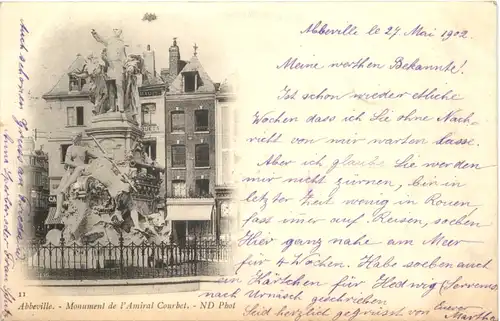 Abbeville le 27 Mai 1902.
Meine werthen Bekannte!
Ist schon wieder etliche
Wochen dass ich Sie ohne Nach-
richt von mir warten lasse.
Aber ich glaube Sie werden
mir nicht zürnen, bin in
letzter Zeit wenig in Rouen
fast immer auf Reisen, soeben
Hier ganz nahe am Meer
für 4 Wochen. Habe soeben auch
ein Kärtchen für Hedwig
nach Urnäsch geschrieben
Seid herzlich gegrüsst von Eurer
Martha
Auch schönen Gruss an
der Frau
11
Abbeville. - Monument de l'Amiral Courbet. - ND Phot